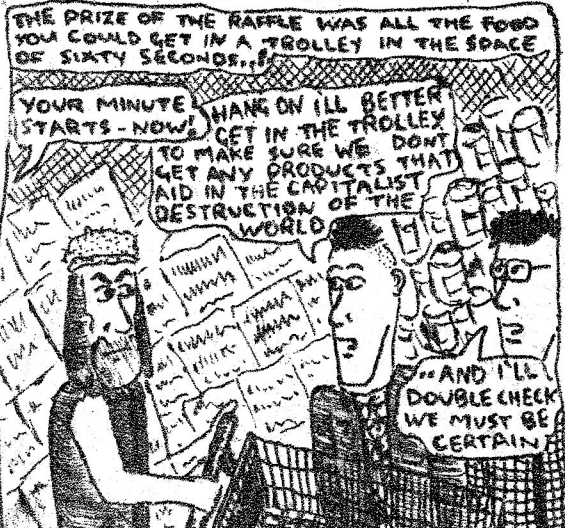 THE PRIZE OF THE RAFFLE WAS ALL THE FOOD
YOU COULD GET IN A TROLLEY IN THE SPACE
OF SIXTY SECONDS..!
YOUR MINUTE
STARTS - NOW!
HANG ON ILL BETTER
GET IN THE TROLLEY
TO MAKE SURE WE DONT
GET ANY PRODUCTS THAT
AID IN THE CAPITALIST
DESTRUCTION OF THE
WORLD
..AND I'LL
DOUBLE CHECK
WE MUST BE
CERTAIN